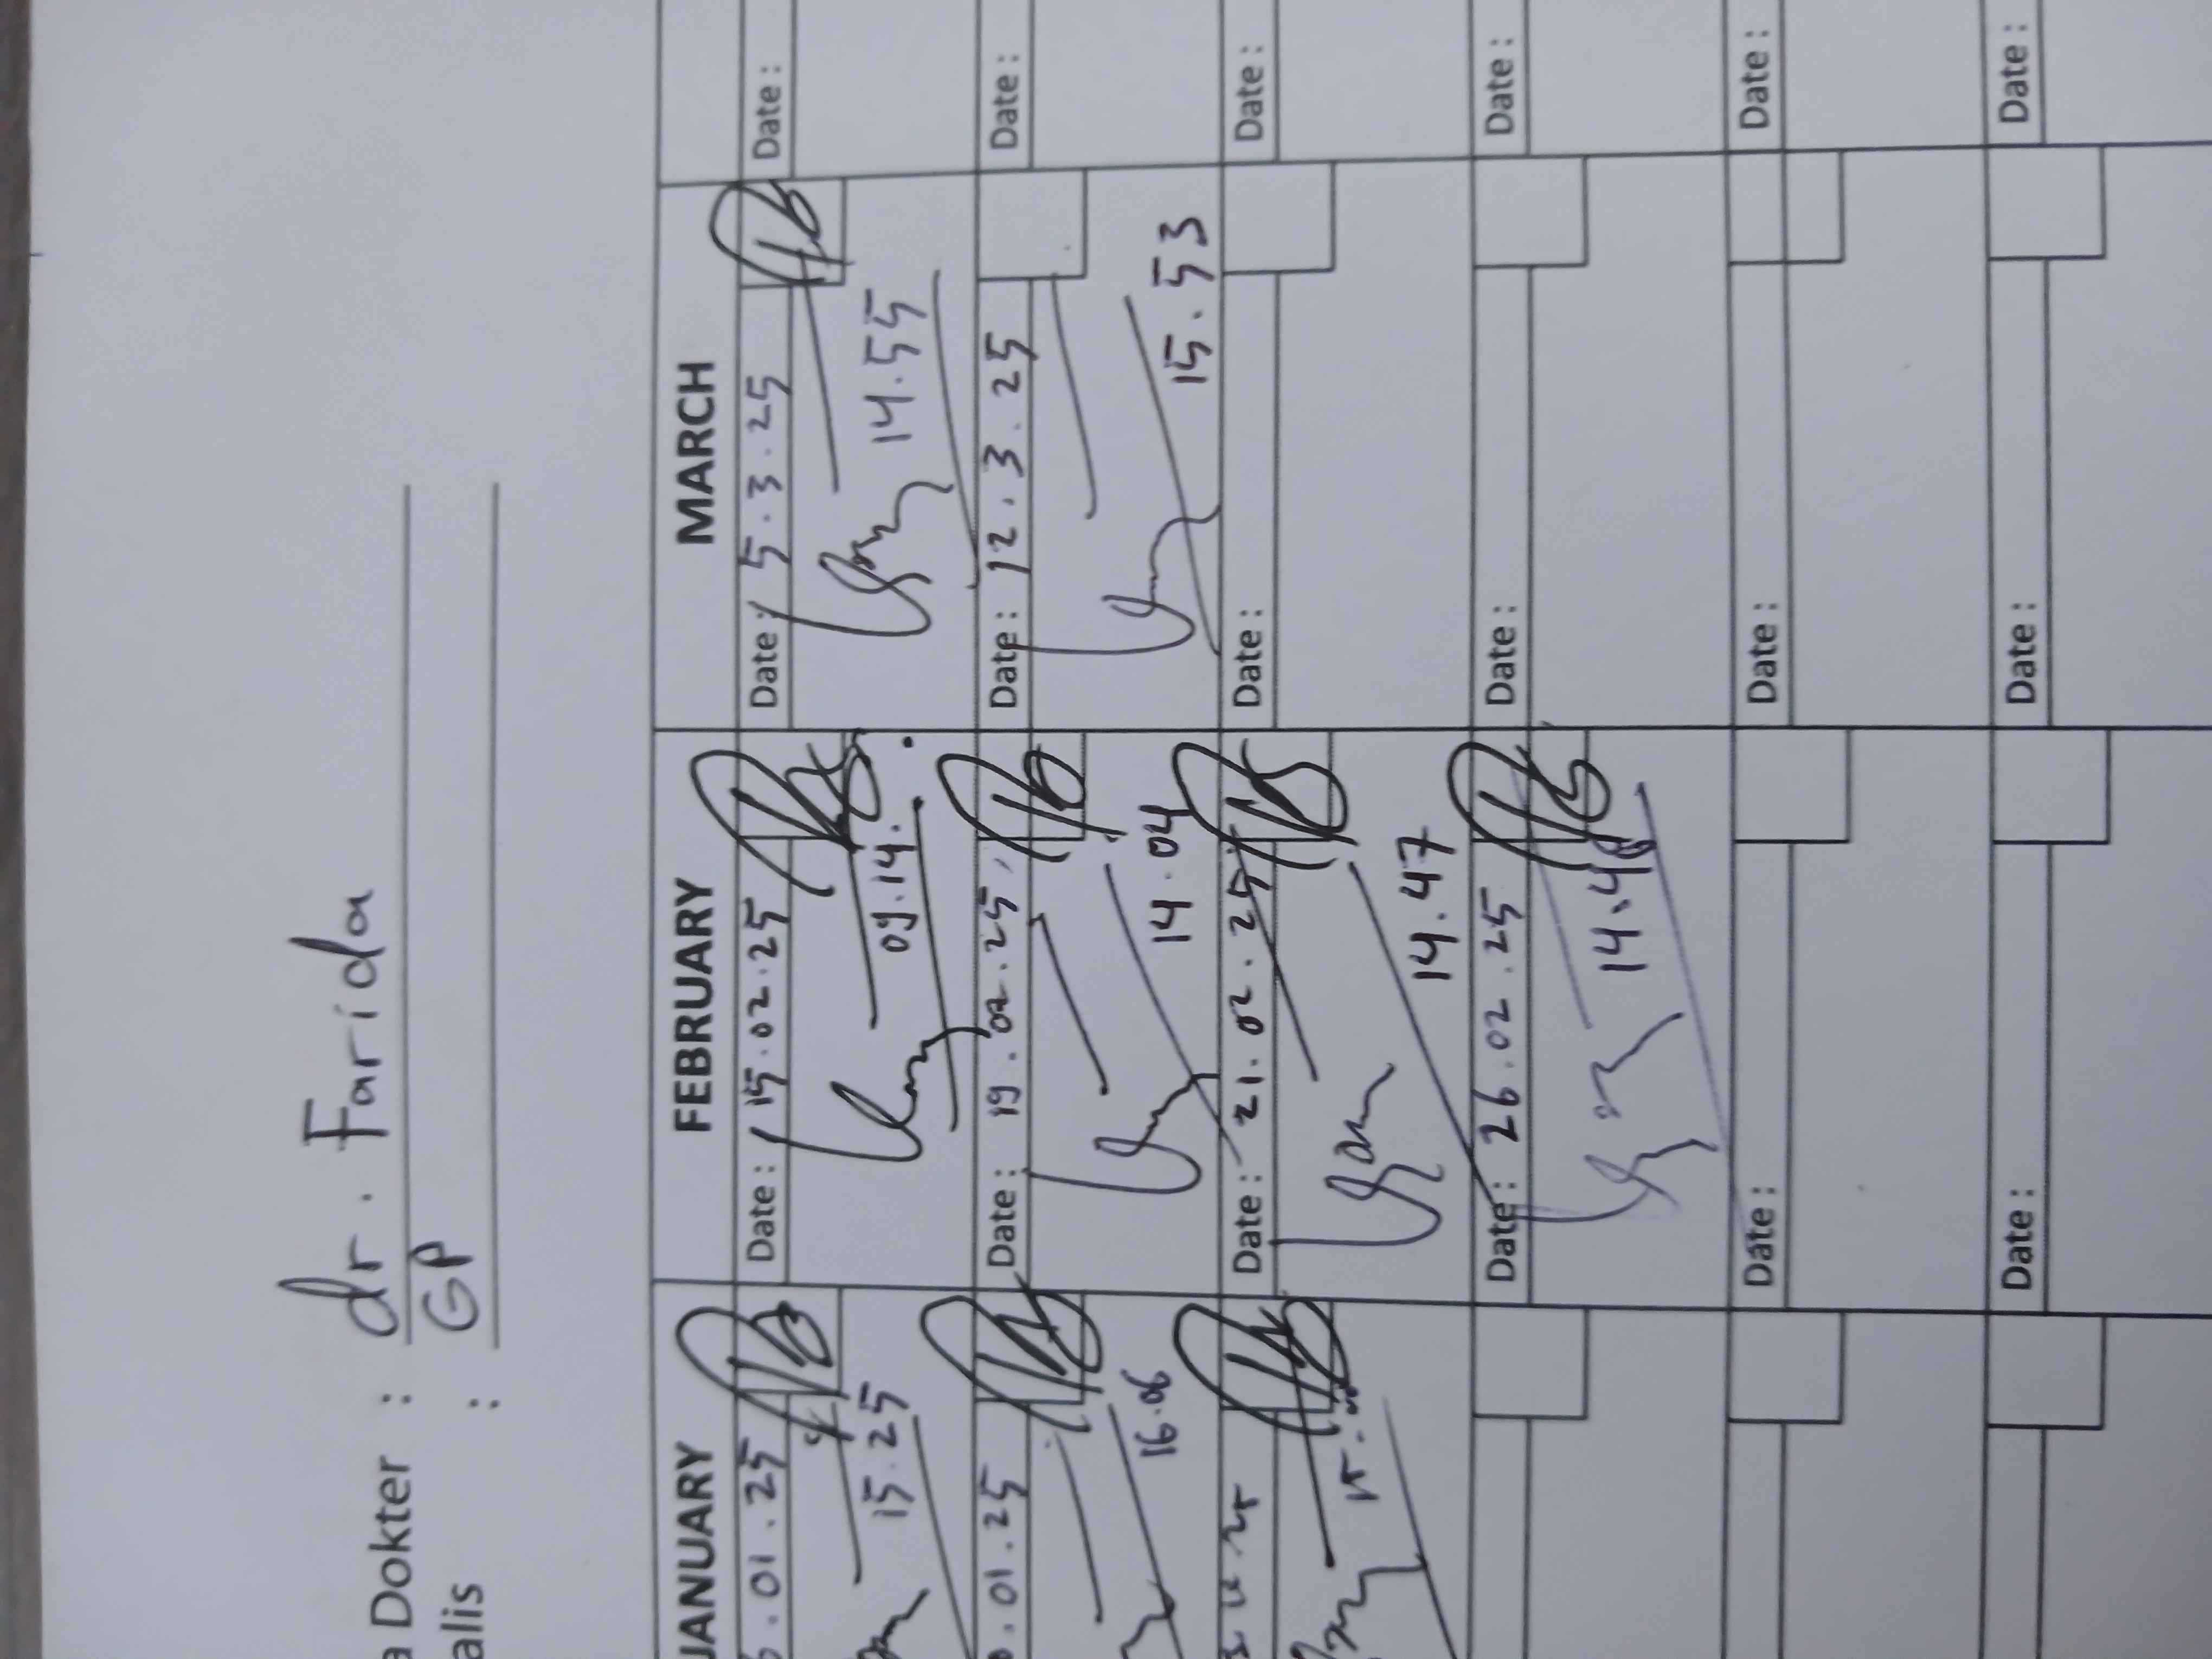 a Dokter : dr. Farida
alis : GP
JANUARY FEBRUARY MARCH
.01.25 Date: 15.02.25 Date: 5.3.25 Date:
15.25 09.14. 14.55
.01.25 Date: 19.02.25 Date: 12.3.25 Date:
16.06 14.04 15.53
Date: 21.02.25 Date: Date:
14.47
Date: 26.02.25 Date: Date:
Date: Date: Date:
Date: Date: Date: